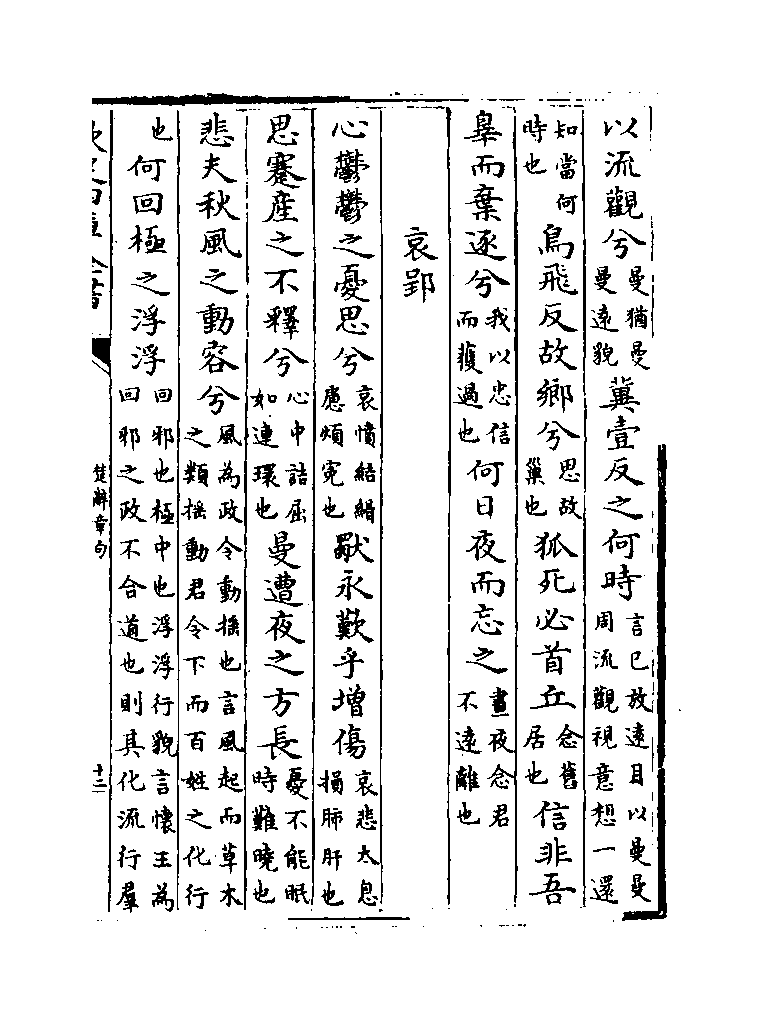 以流觀兮曼猶曼曼遠貌冀壹反之何時言已放遠目以曼曼周流觀視意想一還
知當何時也鳥飛反故鄉兮思故巢也狐死必首丘念舊居也信非吾
辠而棄逐兮我以忠信而獲過也何日夜而忘之晝夜念君不遠離也
哀郢
心鬱鬱之憂思兮哀憤結縎慮煩寃也獨永歎乎增傷哀悲太息損肺肝也
思蹇產之不釋兮心中詰屈如連環也曼遭夜之方長憂不能眠時難曉也
悲夫秋風之動容兮風為政令動揺也言風起而草木之類揺動君令下而百姓之化行
也何回極之浮浮回邪也極中也浮浮行貌言懷王為回邪之政不合道也則其化流行羣
楚辭章句
十二